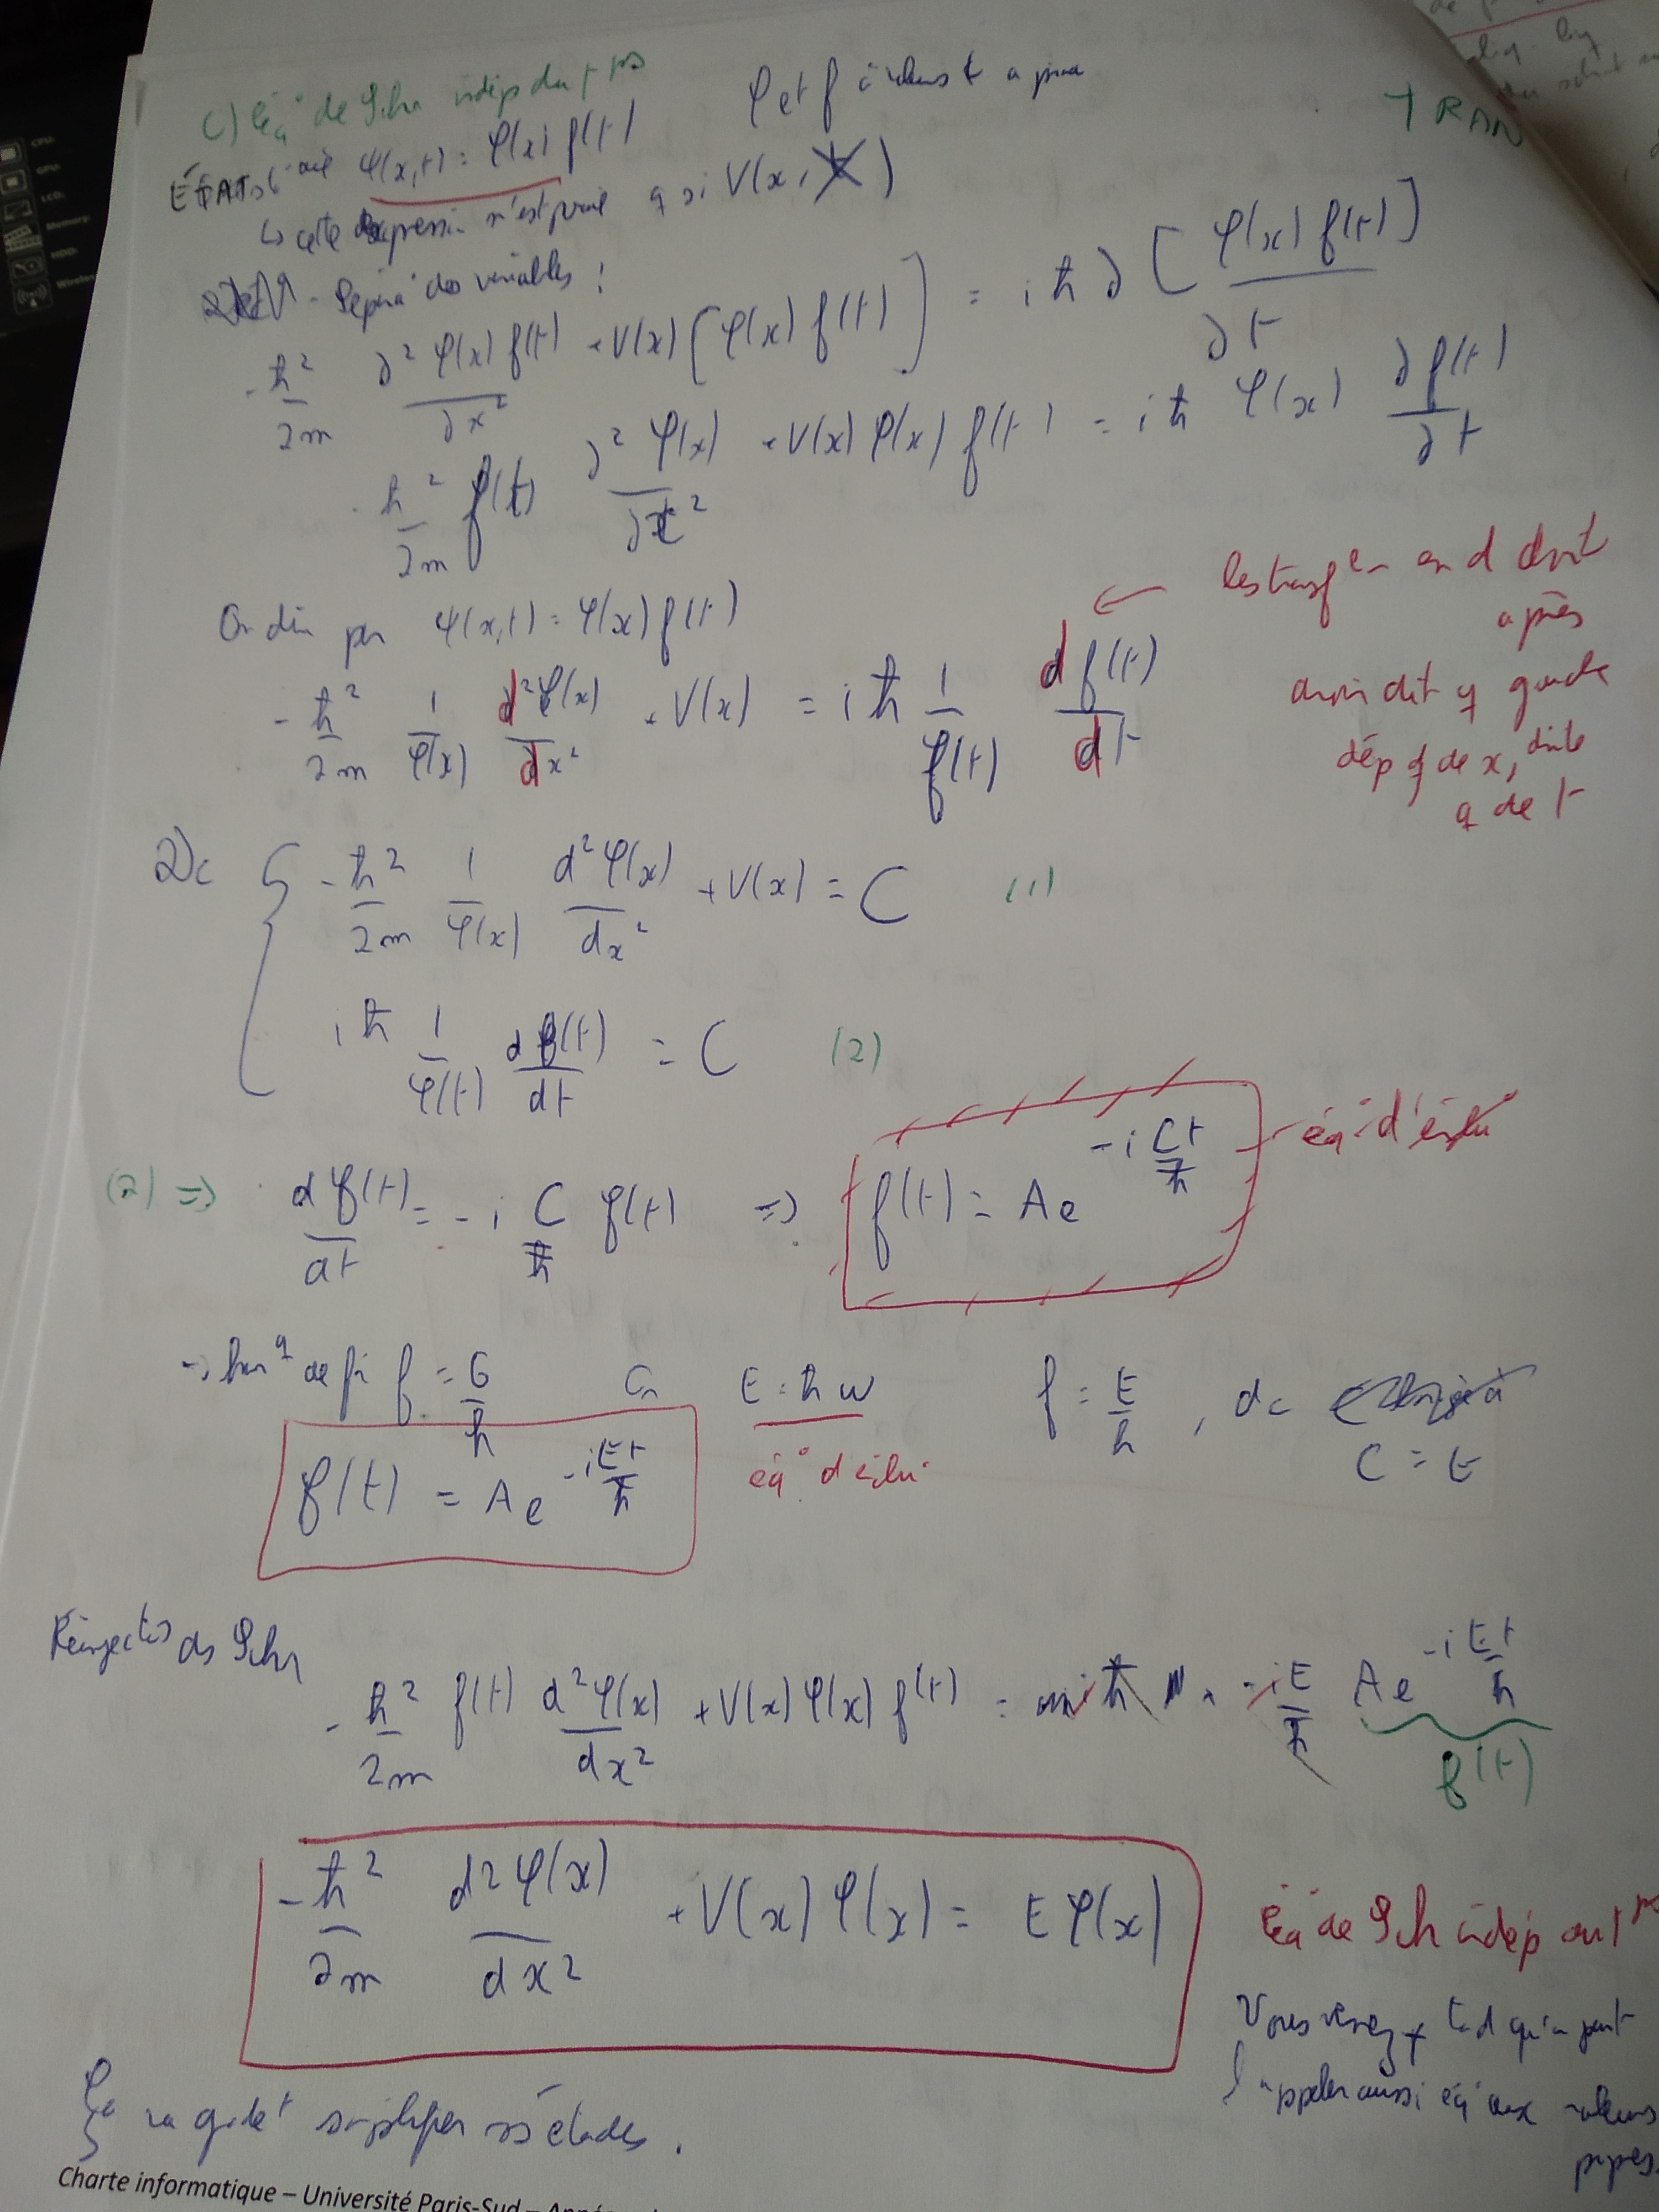 C) Éq° de Schr indép du tps
φ et f à valeurs ds
TRAN
ψ(x,t) = φ(x) f(t)
↳ cette expression n'est q si V(x, t)
DEM - Sépara° des variables :
-ħ²/2m ∂² φ(x) f(t)/∂x² + V(x) [φ(x) f(t)] = iħ ∂[φ(x) f(t)]/∂t
-ħ²/2m f(t) ∂² φ(x)/∂x² + V(x) φ(x) f(t) = iħ φ(x) ∂f(t)/∂t
On div par ψ(x,t) = φ(x) f(t)
-ħ²/2m 1/φ(x) d²φ(x)/dx² + V(x) = iħ 1/f(t) df(t)/dt
← les transf en d droit
après
avoir dit q gauche
dép q de x, droite
q de t
Dc { -ħ²/2m 1/φ(x) d²φ(x)/dx² + V(x) = C (1)
iħ 1/φ(t) df(t)/dt = C (2)
(2) ⇒ df(t)/dt = -i C/ħ f(t) ⇒ f(t) = A e^(-i Ct/ħ)
éq° d'évolu°
→ de f = C/h Or E = ħω f = E/h , dc
C = E
f(t) = A e^(-iEt/ħ)
éq° d'évolu°
Réinjectons ds Schr
-ħ²/2m f(t) d²φ(x)/dx² + V(x) φ(x) f(t) = iħ × -iE/ħ A e^(-iEt/ħ)
f(t)
-ħ²/2m d²φ(x)/dx² + V(x) φ(x) = E φ(x)
Éq de Schr indép du tps
Vous verrez + tard qu'on peut
l'appeler aussi éq° aux valeurs
propres.
Ça va gdet simplifier ns études.
Charte informatique – Université Paris-Sud –